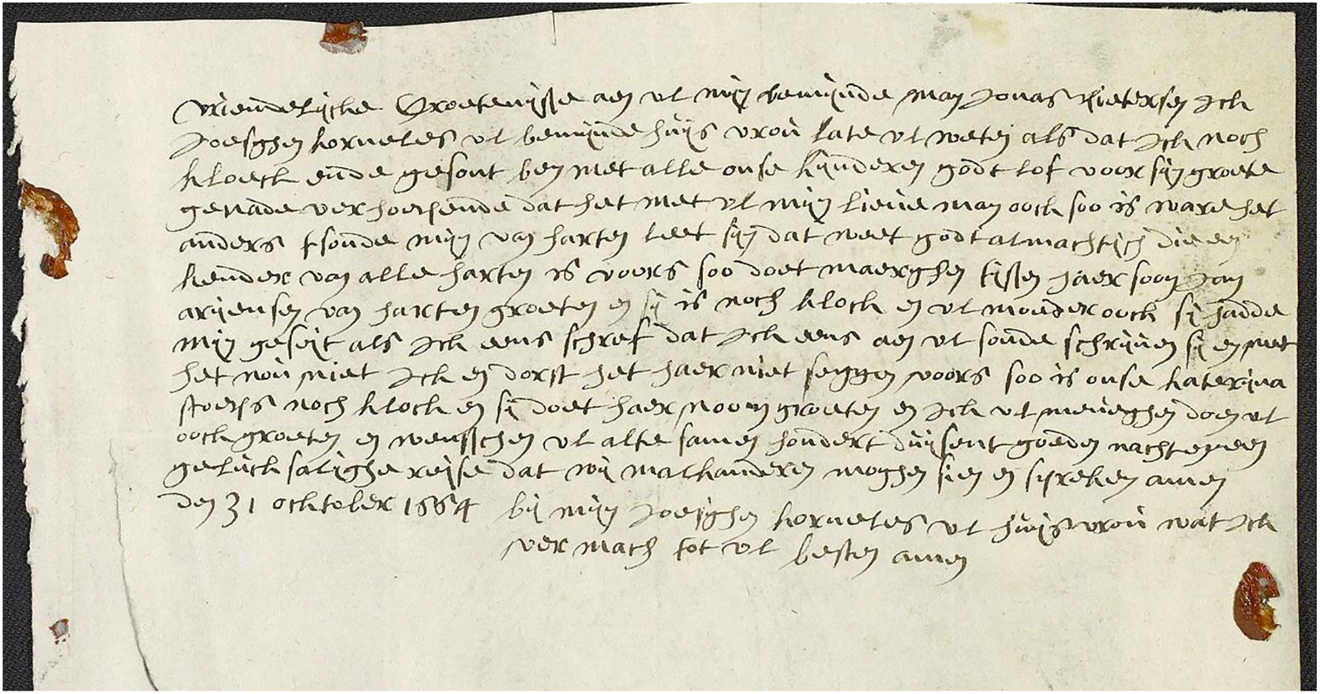 vriendelijcke Groetenisse aen ul mijn beminde man Jonas Pietersen Ick
Joesghen korneles ul beminde huijs vrou late ul weten als dat Ick noch
kloeck ende gesont ben met alle onse kijnderen godt lof voor sijn groete
genade verhoepende dat het met ul mijn lieve man ooch soo is ware het
anders tsoude mijn van harten leet sijn dat weet godt almachtich die een
kender van alle harten is voors soo doet maerghen haer soon Jan
arijensen van harten groeten en sij is noch klock en ul moeder ooch sij hadde
mijn geseijt als Ick eens schref dat Ick eens aen ul soude schrijven sij en
het nou niet Ick en dorst het haer niet seggen voors soo is onse katerijna
stoefs noch klock en sij doet haer noom groeten en Ick ul doen ul
ooch groeten en wensschen ul alte samen hondert duijsent goeden nacht een
geluck salighe reijse dat wij malkanderen moghen sien en spreken amen
den 31 ocktober 1664 bij mijn Joesghen korneles ul huijsvrou wat Ick
vermach tot ul besten amen